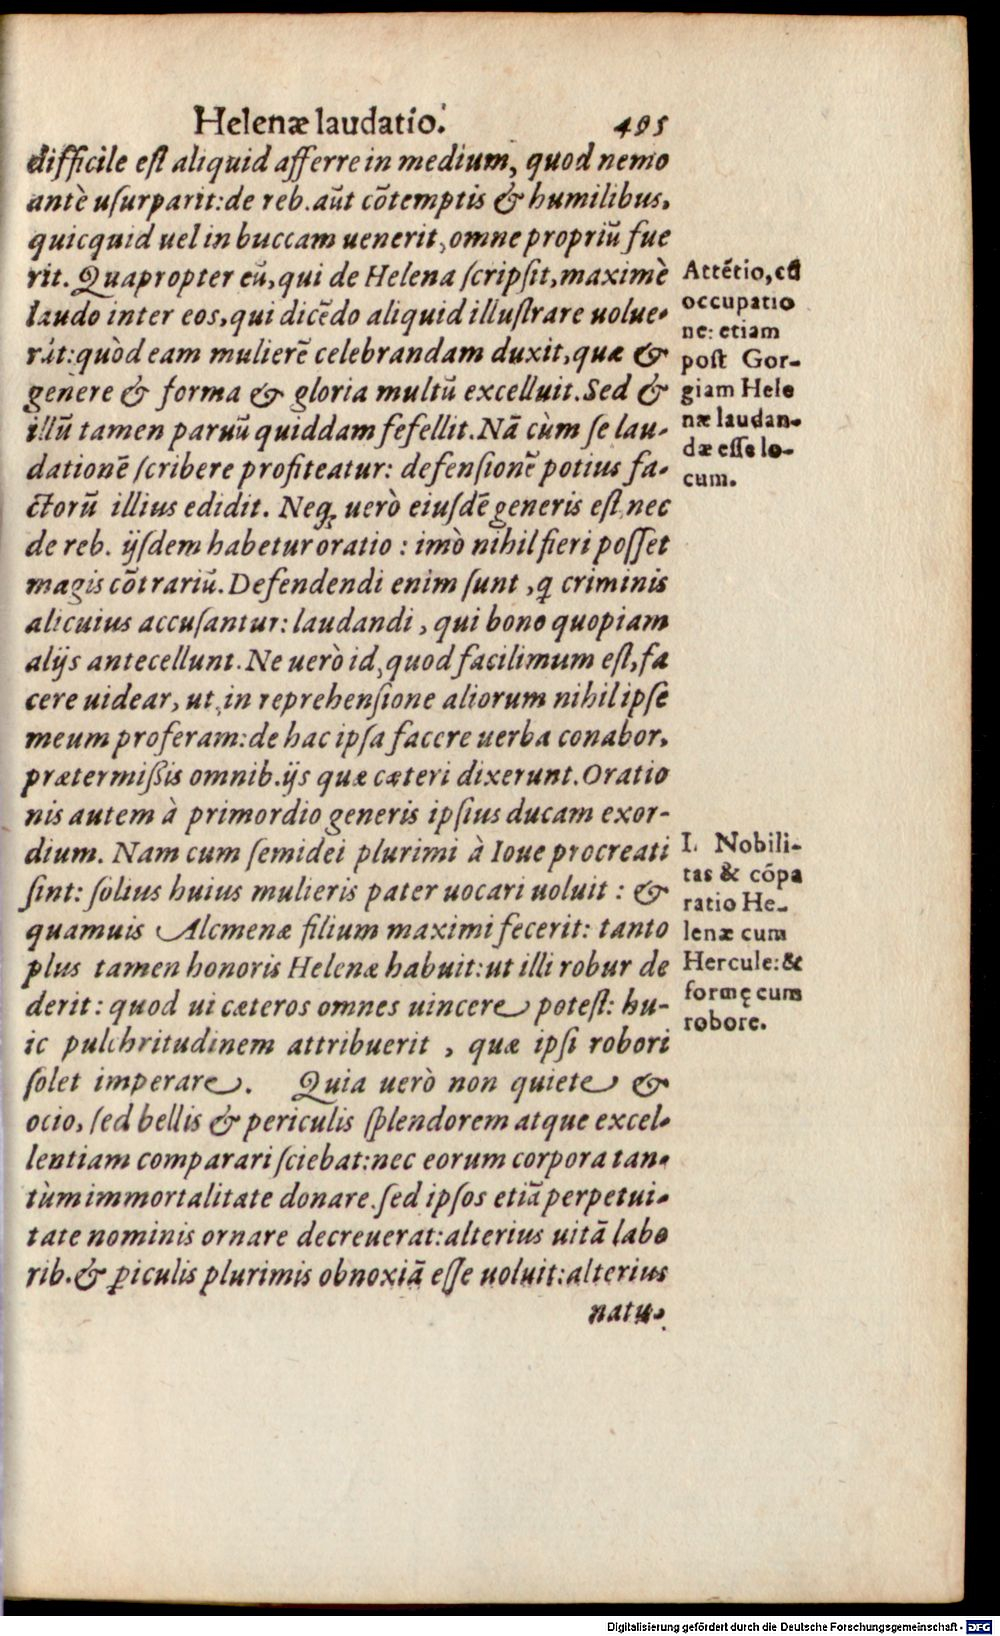 Helenæ laudatio. 495
difficile est aliquid afferre in medium, quod nemo
antè usurparit: de reb. aūt cōtemptis & humilibus,
quicquid uel in buccam uenerit, omne propriū fue
rit. Quapropter eū, qui de Helena scripsit, maximè
laudo inter eos, qui dicēdo aliquid illustrare uolue-
rūt: quòd eam mulierē celebrandam duxit, quæ &
genere & forma & gloria multū excelluit. Sed &
illū tamen paruū quiddam fefellit. Nā cùm se lau-
dationē scribere profiteatur: defensionē potius fa-
ctorū illius edidit. Neq; uerò eiusdē generis est, nec
de reb. ijsdem habetur oratio: imò nihil fieri posset
magis cōtrariū. Defendendi enim sunt, q criminis
alicuius accusantur: laudandi, qui bono quopiam
alijs antecellunt. Ne uerò id, quod facilimum est, fa
cere uidear, ut, in reprehensione aliorum nihil ipse
meum proferam: de hac ipsa facere uerba conabor,
prætermißis omnib. ijs quæ cæteri dixerunt. Oratio
nis autem à primordio generis ipsius ducam exor-
dium. Nam cum semidei plurimi à Ioue procreati
sint: solius huius mulieris pater uocari uoluit: &
quamuis Alcmenæ filium maximi fecerit: tanto
plus tamen honoris Helenæ habuit: ut illi robur de
derit: quod ui cæteros omnes uincere potest: hu-
ic pulchritudinem attribuerit, quæ ipsi robori
solet imperare. Quia uerò non quiete &
ocio, sed bellis & periculis splendorem atque excel-
lentiam comparari sciebat: nec eorum corpora tan-
tùm immortalitate donare. sed ipsos etiā perpetui-
tate nominis ornare decreuerat: alterius uitā labo
rib. & ꝑiculis plurimis obnoxiā esse uoluit: alterius
natu-
Attētio, cū
occupatio
ne: etiam
post Gor-
giam Hele
næ laudan-
dæ esse lo-
cum.
I. Nobili-
tas & cōpa
ratio He-
lenæ cum
Hercule: &
formę cum
robore.
Digitalisierung gefördert durch die Deutsche Forschungsgemeinschaft - DFG